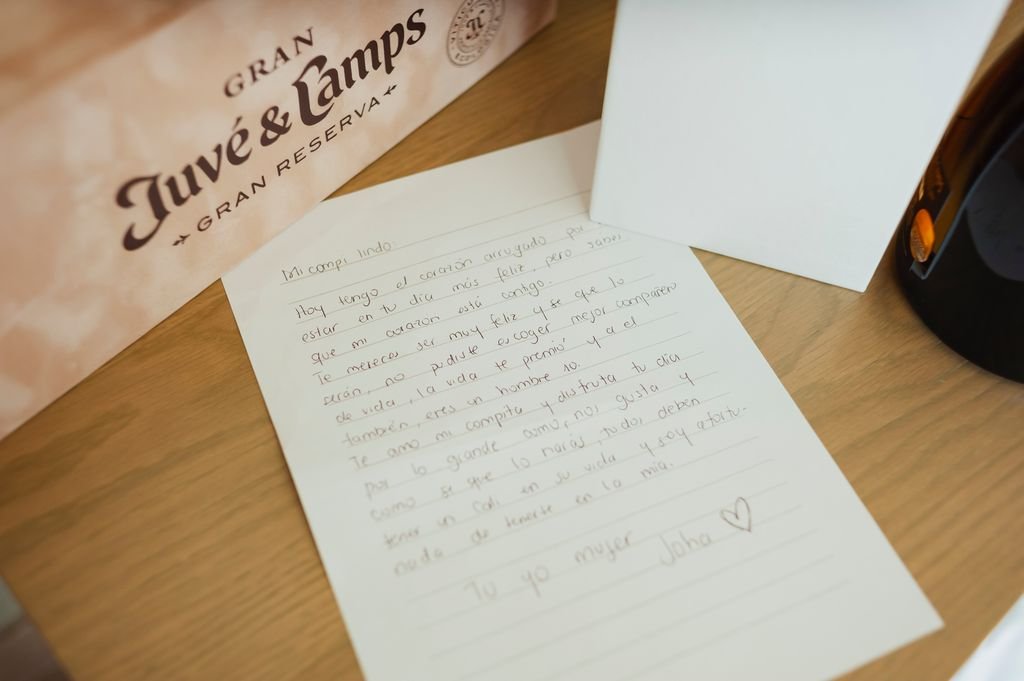 GRAN
Juvé & Camps
GRAN RESERVA
Mi compi lindo:
Hoy tengo el corazón arrugado por
estar en tu día más feliz, pero sabes
que mi corazón está contigo.
Te mereces ser muy feliz y se que lo
serán, no pudiste escoger mejor compañero
de vida, la vida te premió y a el
también, eres un hombre 10.
Te amo mi compita y disfruta tu día
por lo grande como nos gusta y
como se que lo harás, todos deben
tener un Cali en su vida y soy afortu-
nada de tenerte en la mía.
Tu yo mujer
Joha ♡